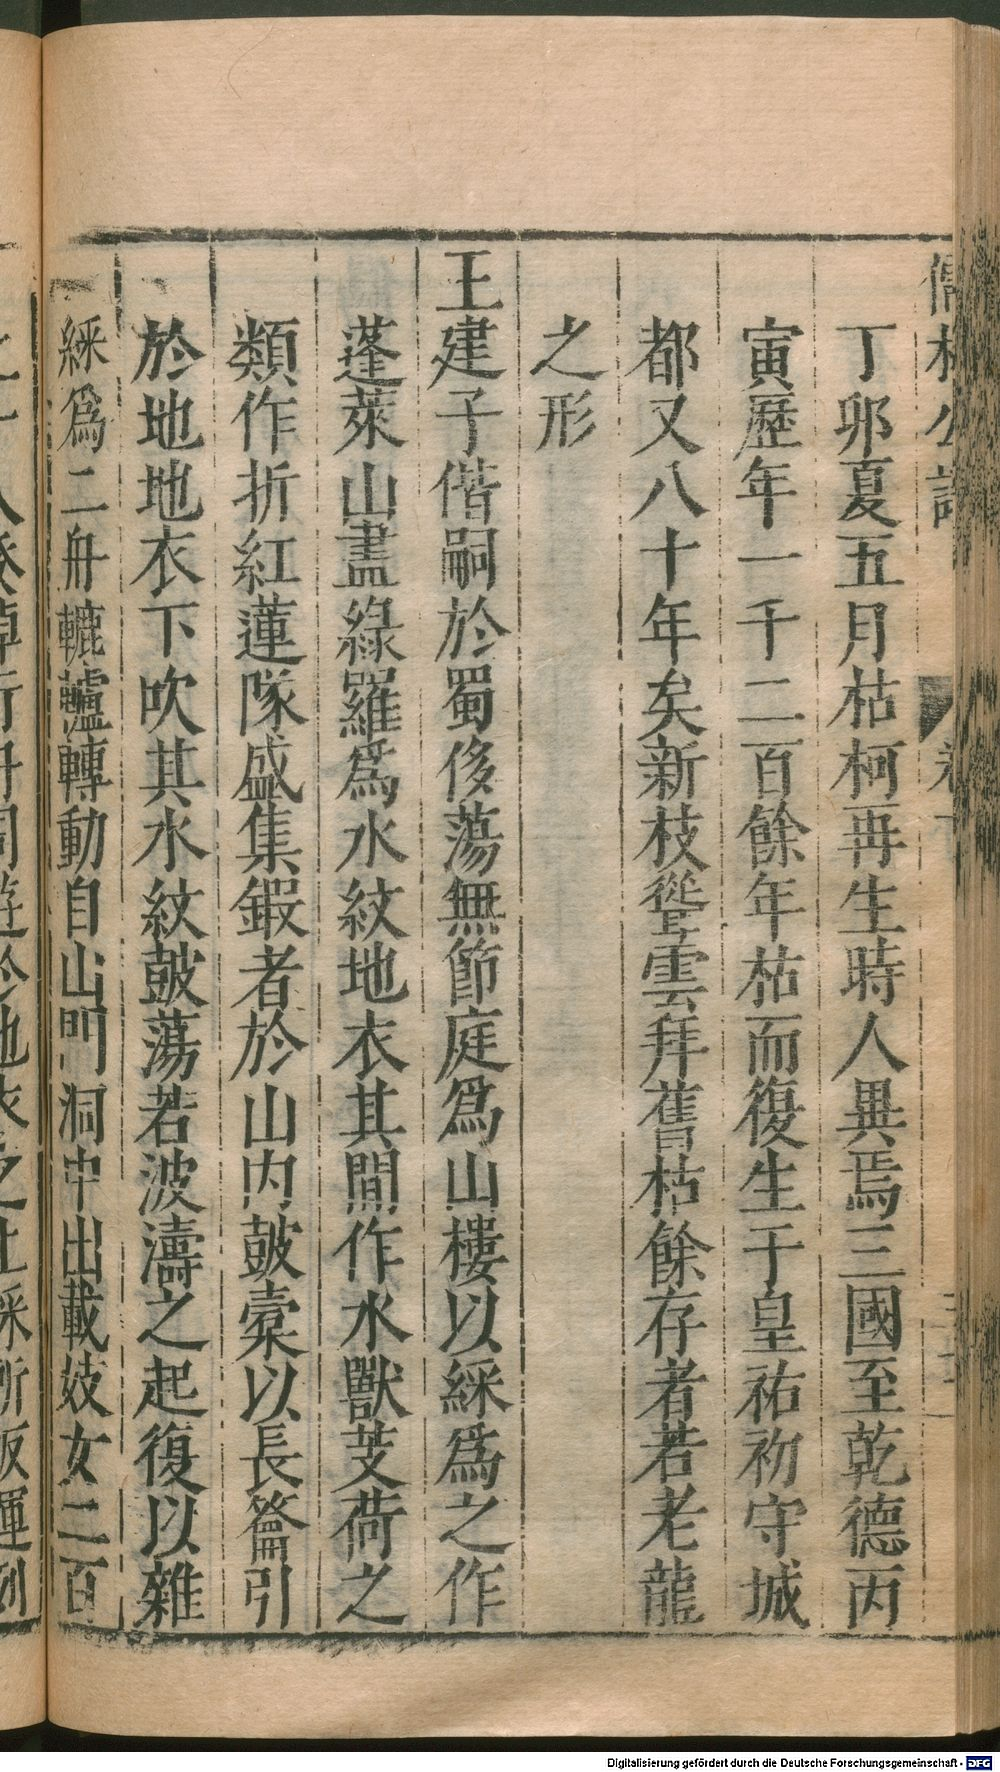 丁卯夏五月枯柯再生時人異焉三國至乾德丙
寅歷年一千二百餘年枯而復生于皇祐初守城
都又八十年矣新枝聳雲拜舊枯餘存者若老龍
之形
王建子偕嗣於蜀侈蕩無節庭爲山樓以綵爲之作
蓬萊山畫綠羅爲水紋地衣其間作水獸芰荷之
類作折紅蓮隊盛集鍜者於山內鼓槖以長籥引
於地地衣下吹其水紋鼓蕩若波濤之起復以雜
綵爲二舟轆轤轉動自山門洞中出載妓女二百
Digitalisierung gefördert durch die Deutsche Forschungsgemeinschaft - DFG